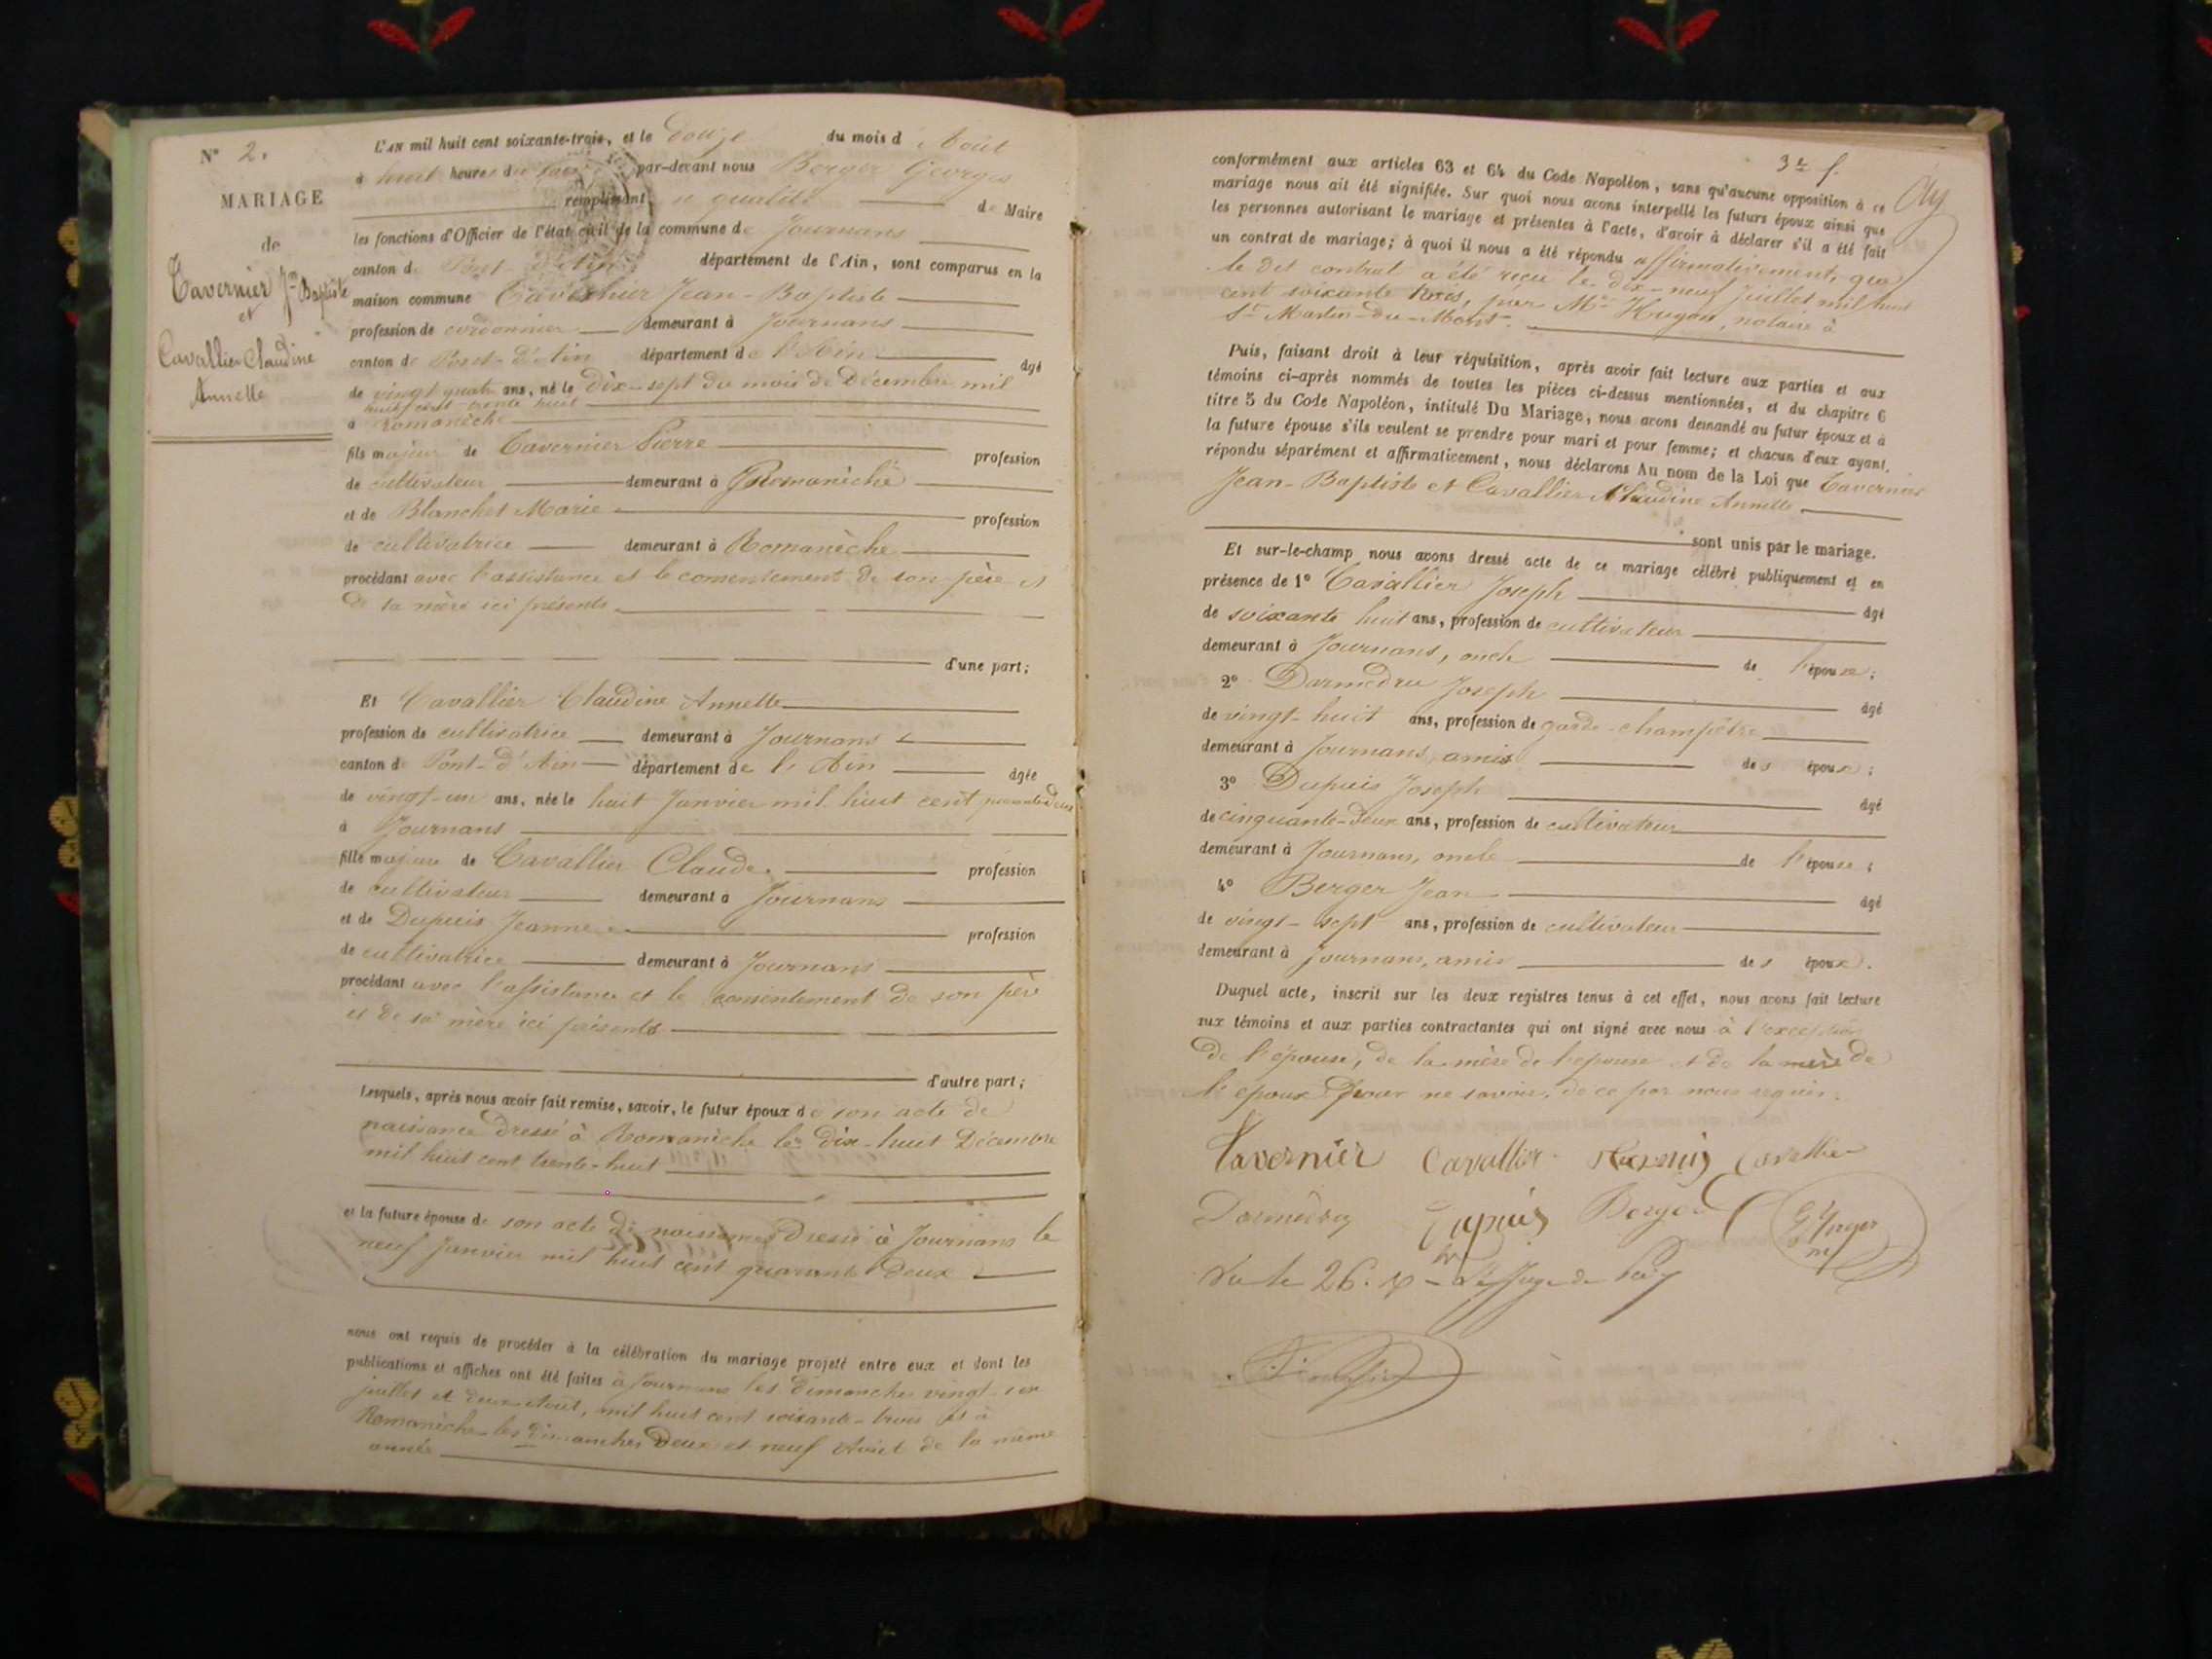 N° 2.
MARIAGE
de
Tavernier Jn Baptiste
et
Cavallier Claudine
Annette
L'AN mil huit cent soixante-trois, et le douze du mois d'Août
à huit heures du soir par-devant nous Berger Georges
remplissant en qualité de Maire
les fonctions d'Officier de l'état civil de la commune de Journans
canton de Pont-d'Ain département de l'Ain, sont comparus en la
maison commune Tavernier Jean-Baptiste
profession de cordonnier demeurant à Journans
canton de Pont-d'Ain département de l'Ain âgé
de vingt quatre ans, né le dix-sept du mois de Décembre mil
huit cent trente huit
à Romanèche
fils majeur de Tavernier Pierre profession
de cultivateur demeurant à Romanèche
et de Blanchet Marie profession
de cultivatrice demeurant à Romanèche
procédant avec l'assistance et le consentement de son père et
de sa mère ici présents
d'une part;
Et Cavallier Claudine Annette
profession de cultivatrice demeurant à Journans
canton de Pont-d'Ain département de l'Ain âgée
de vingt-un ans, née le huit Janvier mil huit cent quarante deux
à Journans
fille majeure de Cavallier Claude profession
de cultivateur demeurant à Journans
et de Dupuis Jeanne profession
de cultivatrice demeurant à Journans
procédant avec l'assistance et le consentement de son père
et de sa mère ici présents
d'autre part;
Lesquels, après nous avoir fait remise, savoir, le futur époux de son acte de
naissance dressé à Romanèche le dix-huit Décembre
mil huit cent trente-huit
et la future épouse de son acte de naissance dressé à Journans le
neuf Janvier mil huit cent quarante deux
nous ont requis de procéder à la célébration du mariage projeté entre eux et dont les
publications et affiches ont été faites à Journans les dimanches vingt-six
juillet et deux Août, mil huit cent soixante-trois et à
Romanèche les dimanches deux et neuf Août de la même
année
3e f.
conformément aux articles 63 et 64 du Code Napoléon, sans qu'aucune opposition à ce
mariage nous ait été signifiée. Sur quoi nous avons interpellé les futurs époux ainsi que
les personnes autorisant le mariage et présentes à l'acte, d'avoir à déclarer s'il a été fait
un contrat de mariage; à quoi il nous a été répondu affirmativement, que
le dit contrat a été reçu le dix-neuf Juillet mil huit
cent soixante trois, par Me Hugon, notaire à
St Martin-du-Mont.
Puis, faisant droit à leur réquisition, après avoir fait lecture aux parties et aux
témoins ci-après nommés de toutes les pièces ci-dessus mentionnées, et du chapitre 6
titre 5 du Code Napoléon, intitulé Du Mariage, nous avons demandé au futur époux et à
la future épouse s'ils veulent se prendre pour mari et pour femme; et chacun d'eux ayant
répondu séparément et affirmativement, nous déclarons Au nom de la Loi que Tavernier
Jean-Baptiste et Cavallier Claudine Annette
sont unis par le mariage.
Et sur-le-champ nous avons dressé acte de ce mariage célébré publiquement et en
présence de 1° Cavallier Joseph âgé
de soixante huit ans, profession de cultivateur
demeurant à Journans, oncle de l'épouse;
2° Darmedru Joseph âgé
de vingt-huit ans, profession de garde-champêtre
demeurant à Journans, amis des époux;
3° Dupuis Joseph âgé
de cinquante-deux ans, profession de cultivateur
demeurant à Journans, oncle de l'épouse;
4° Berger Jean âgé
de vingt-sept ans, profession de cultivateur
demeurant à Journans, amis des époux.
Duquel acte, inscrit sur les deux registres tenus à cet effet, nous avons fait lecture
aux témoins et aux parties contractantes qui ont signé avec nous à l'exception
de l'épouse, de la mère de l'épouse et de la mère de
l'époux pour ne savoir, de ce par nous requis.
Tavernier Cavallier Cavallier
Darmedru Dupuis Berger
Vu le 26. Le Juge de Paix